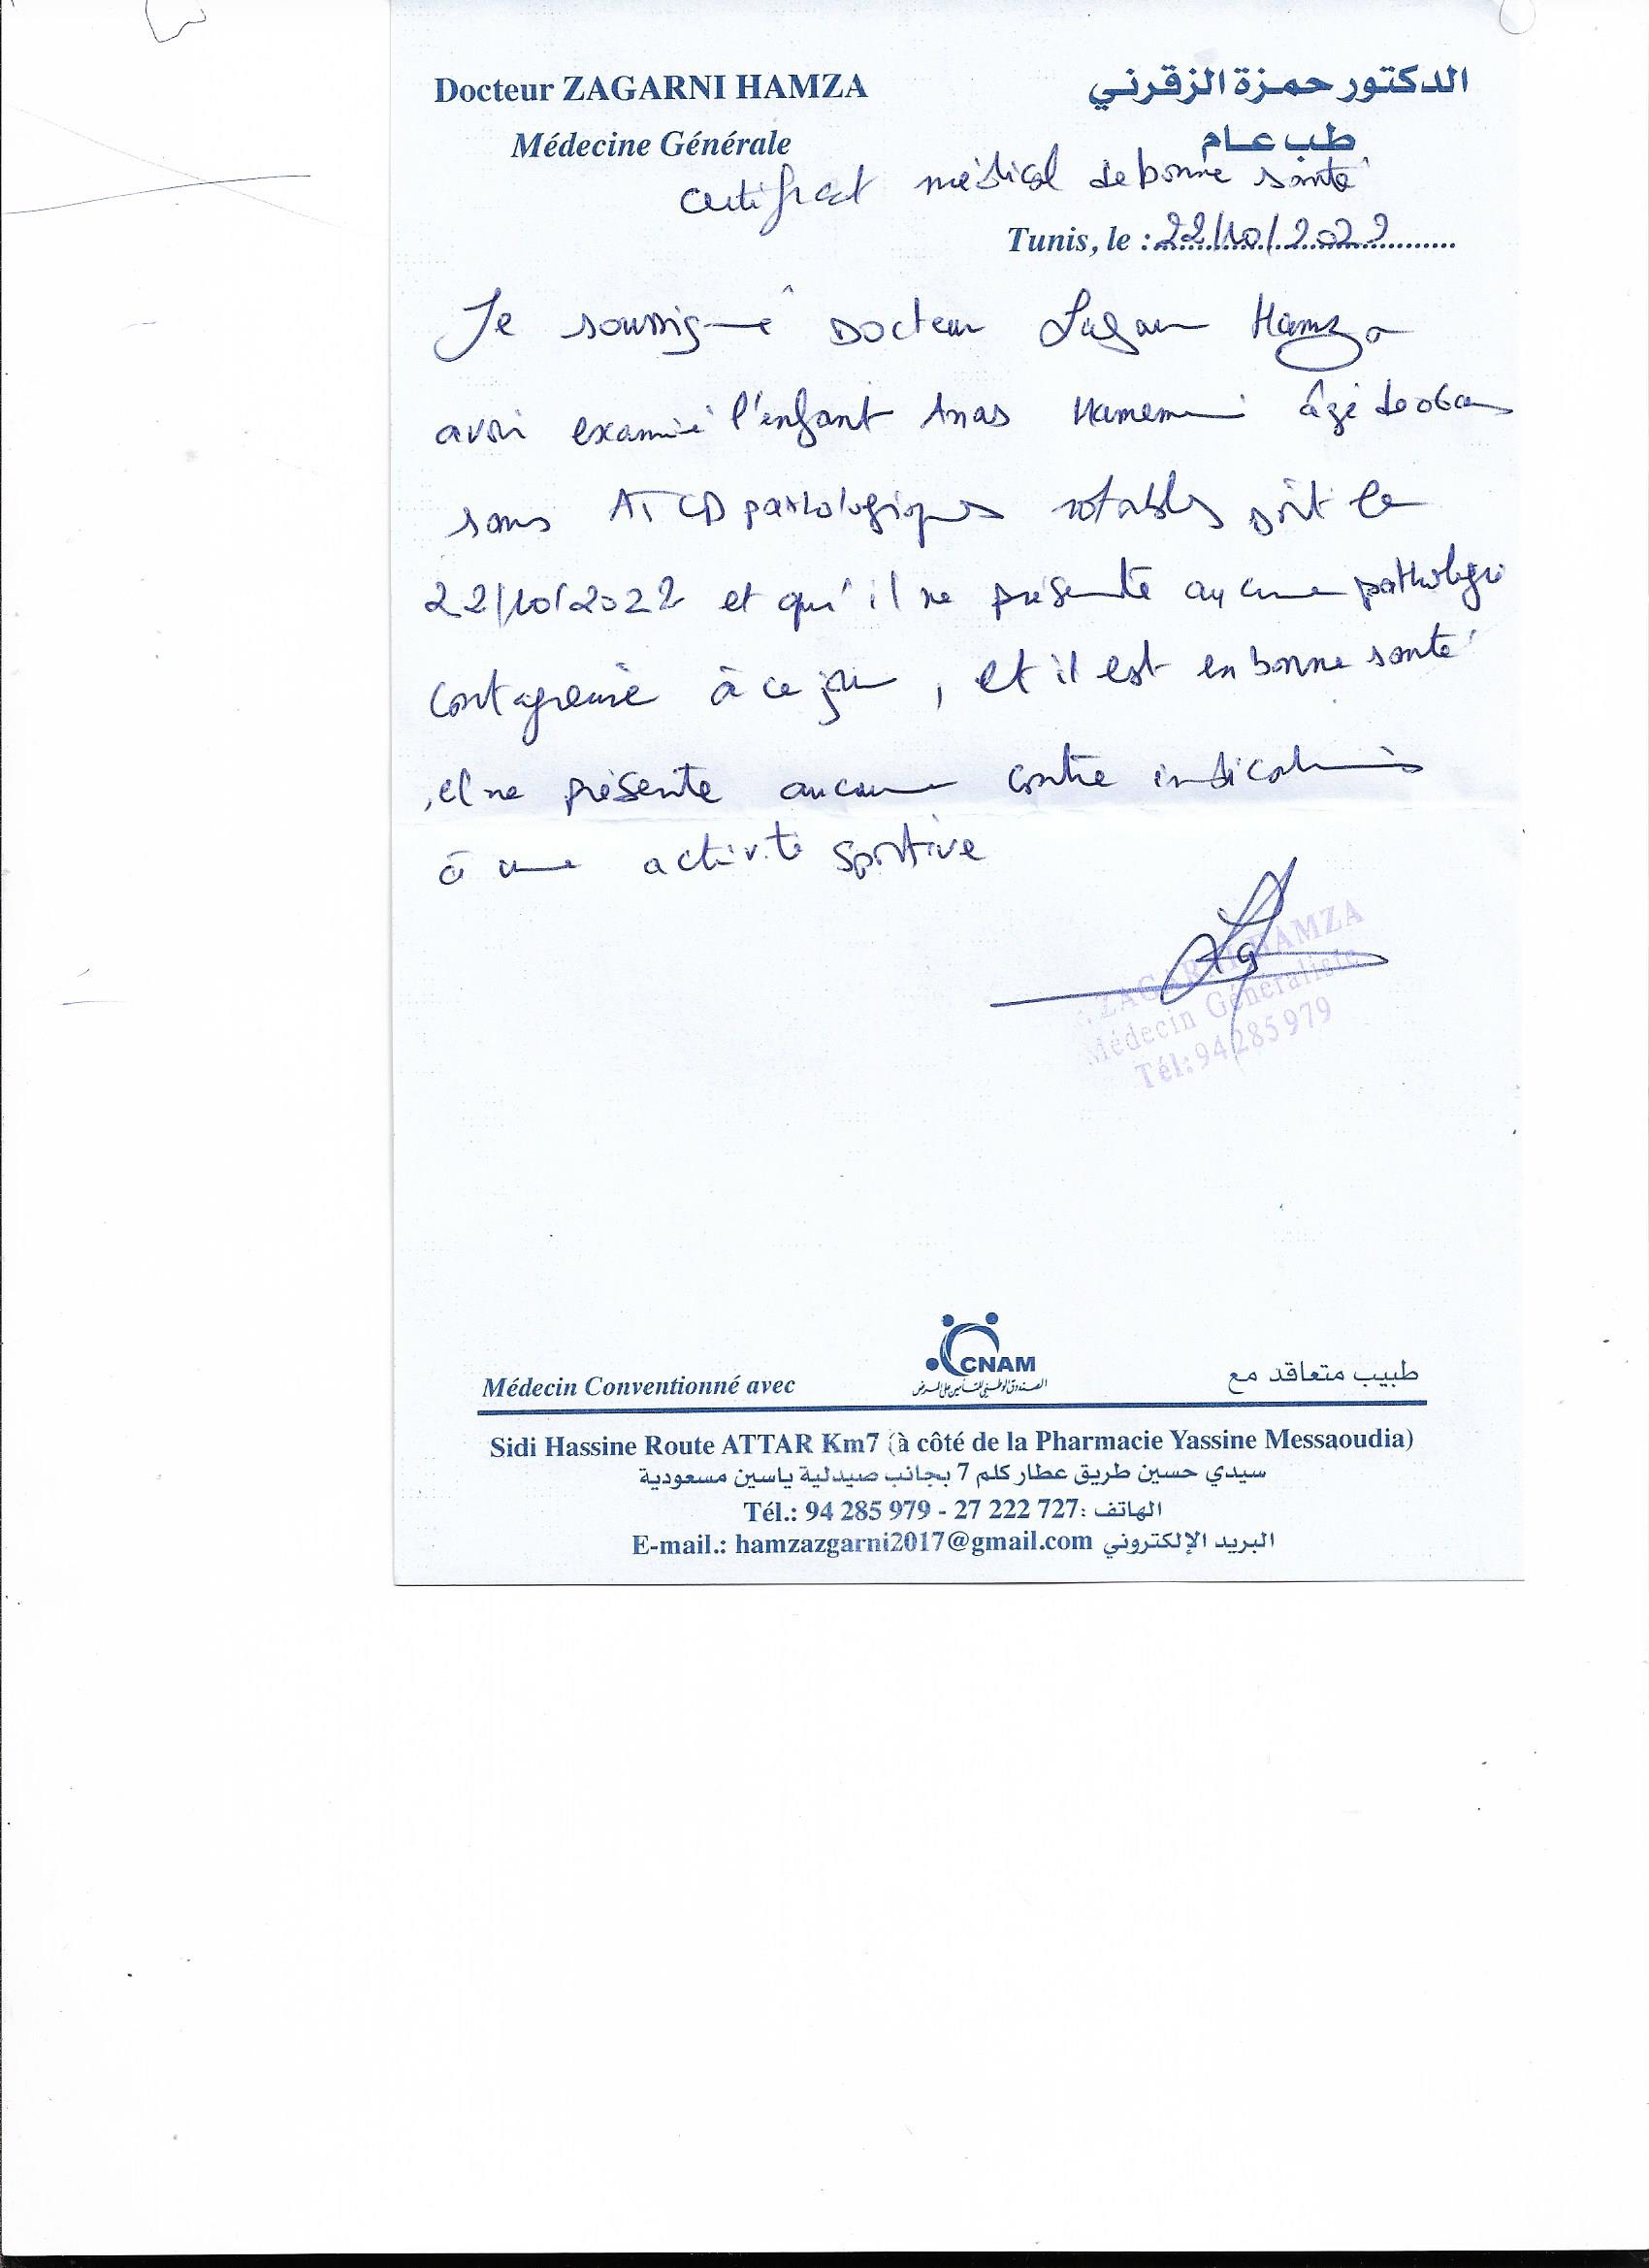 Docteur ZAGARNI HAMZA
الدكتور حمزة الزقرني
Médecine Générale
طب عام
certificat médical de bonne santé
Tunis, le : 22/10/2022
Je soussigné Docteur Zagarni Hamza
avoir examiné l'enfant Anas Hamemi âgé de 06 ans
sans ATCD pathologiques notables soit le
22/10/2022 et qu'il ne présente aucune pathologie
contagieuse à ce jour, et il est en bonne santé
, el ne présente aucune contre indications
à une activité sportive
ZAGARNI HAMZA
Médecin Généraliste
Tél: 94 285 979
Médecin Conventionné avec
CNAM
الصندوق الوطني للتأمين على المرض
طبيب متعاقد مع
Sidi Hassine Route ATTAR Km7 (à côté de la Pharmacie Yassine Messaoudia)
سيدي حسين طريق عطار كلم 7 بجانب صيدلية ياسين مسعودية
Tél.: 94 285 979 - 27 222 727: الهاتف
E-mail.: hamzazgarni2017@gmail.com البريد الإلكتروني